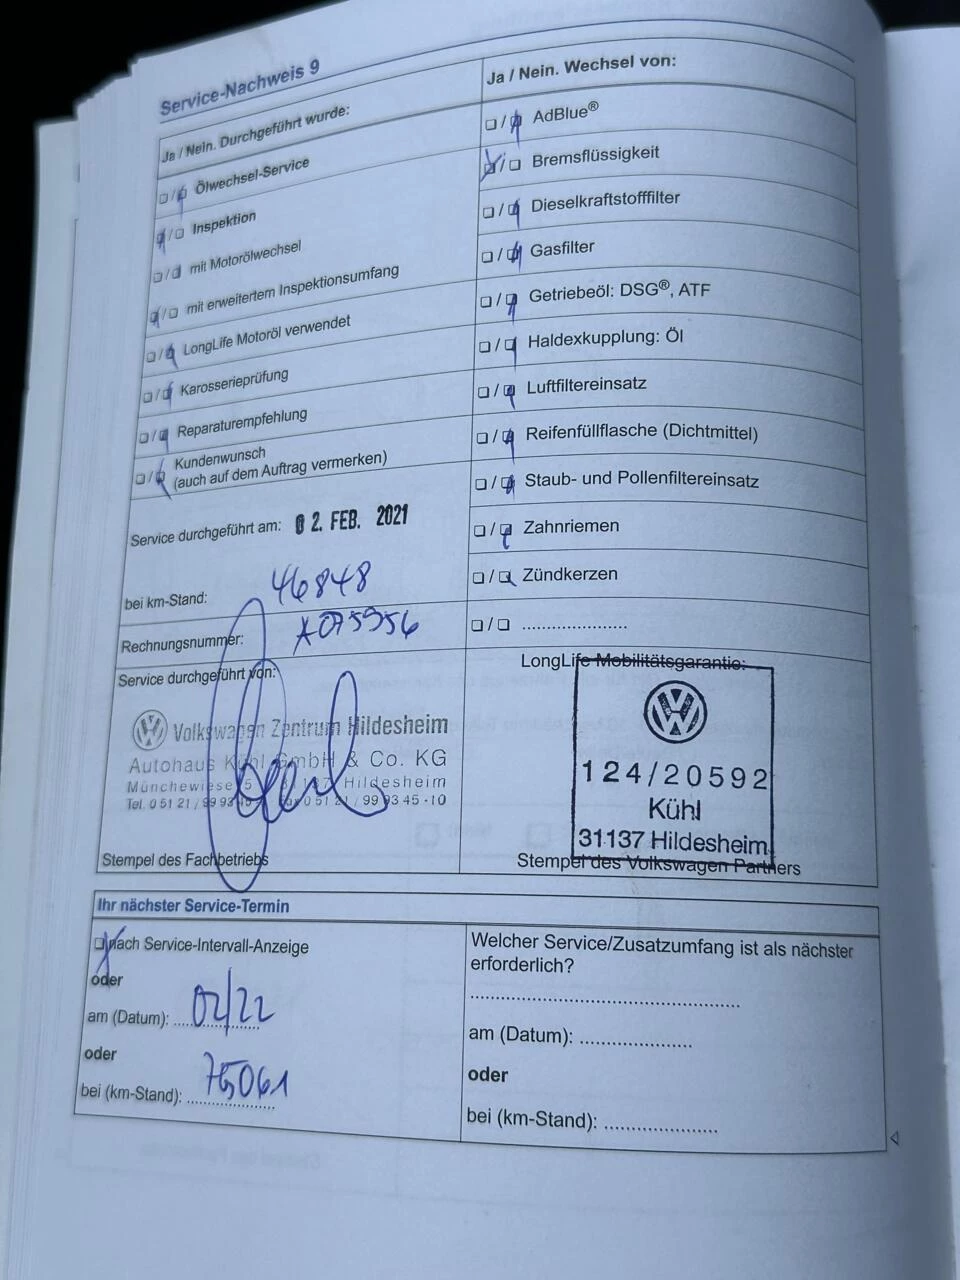 Service-Nachweis 9
Ja / Nein. Durchgeführt wurde:
❏ / ❏ Ölwechsel-Service
❏ / ❏ Inspektion
❏ / ❏ mit Motorölwechsel
❏ / ❏ mit erweitertem Inspektionsumfang
❏ / ❏ LongLife Motoröl verwendet
❏ / ❏ Karosserieprüfung
❏ / ❏ Reparaturempfehlung
❏ / ❏ Kundenwunsch
(auch auf dem Auftrag vermerken)
Service durchgeführt am: 02. FEB. 2021
bei km-Stand: 46848
Rechnungsnummer: A075956
Service durchgeführt von:
Volkswagen Zentrum Hildesheim
Autohaus Kühl GmbH & Co. KG
Münchewiese 31137 Hildesheim
Tel. 0 51 21 / 99 93 Fax 0 51 21 / 99 93 45 - 10
Stempel des Fachbetriebs
Ja / Nein. Wechsel von:
❏ / ❏ AdBlue®
❏ / ❏ Bremsflüssigkeit
❏ / ❏ Dieselkraftstofffilter
❏ / ❏ Gasfilter
❏ / ❏ Getriebeöl: DSG®, ATF
❏ / ❏ Haldexkupplung: Öl
❏ / ❏ Luftfiltereinsatz
❏ / ❏ Reifenfüllflasche (Dichtmittel)
❏ / ❏ Staub- und Pollenfiltereinsatz
❏ / ❏ Zahnriemen
❏ / ❏ Zündkerzen
❏ / ❏ .....................
LongLife Mobilitätsgarantie:
124/20592
Kühl
31137 Hildesheim
Stempel des Volkswagen Partners
Ihr nächster Service-Termin
❏ nach Service-Intervall-Anzeige
oder
am (Datum): 02/22
oder
bei (km-Stand): 75061
Welcher Service/Zusatzumfang ist als nächster
erforderlich?
.....................................................
am (Datum): ......................
oder
bei (km-Stand): ......................